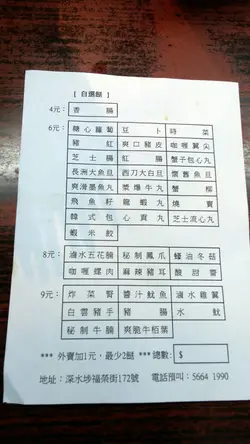 【自選餸】
4元： 香腸
6元： 糖心蘿蔔 豆卜 時菜
豬紅 爽口豬皮 咖喱翼尖
芝士腸 紅腸 蟹子包心丸
長洲大魚旦 西刀大白旦 懷舊魚旦
爽滑墨魚丸 漿爆牛丸 蟹柳
飛魚籽 龍蝦丸 燒賣
韓式包 心貢丸 芝士流心丸
蝦米餃
8元： 滷水五花腩 秘制鳳爪 蠔油冬菇
咖喱螺肉 麻辣豬耳 酸甜齋
9元： 炸菜腎 醬汁魷魚 滷水雞翼
白雲豬手 豬腸 水魷
秘制牛腩 爽脆牛栢葉
*** 外賣加1元，最少2餸 *** 總數： $
地址：深水埗福榮街172號 電話預叫：5664 1990